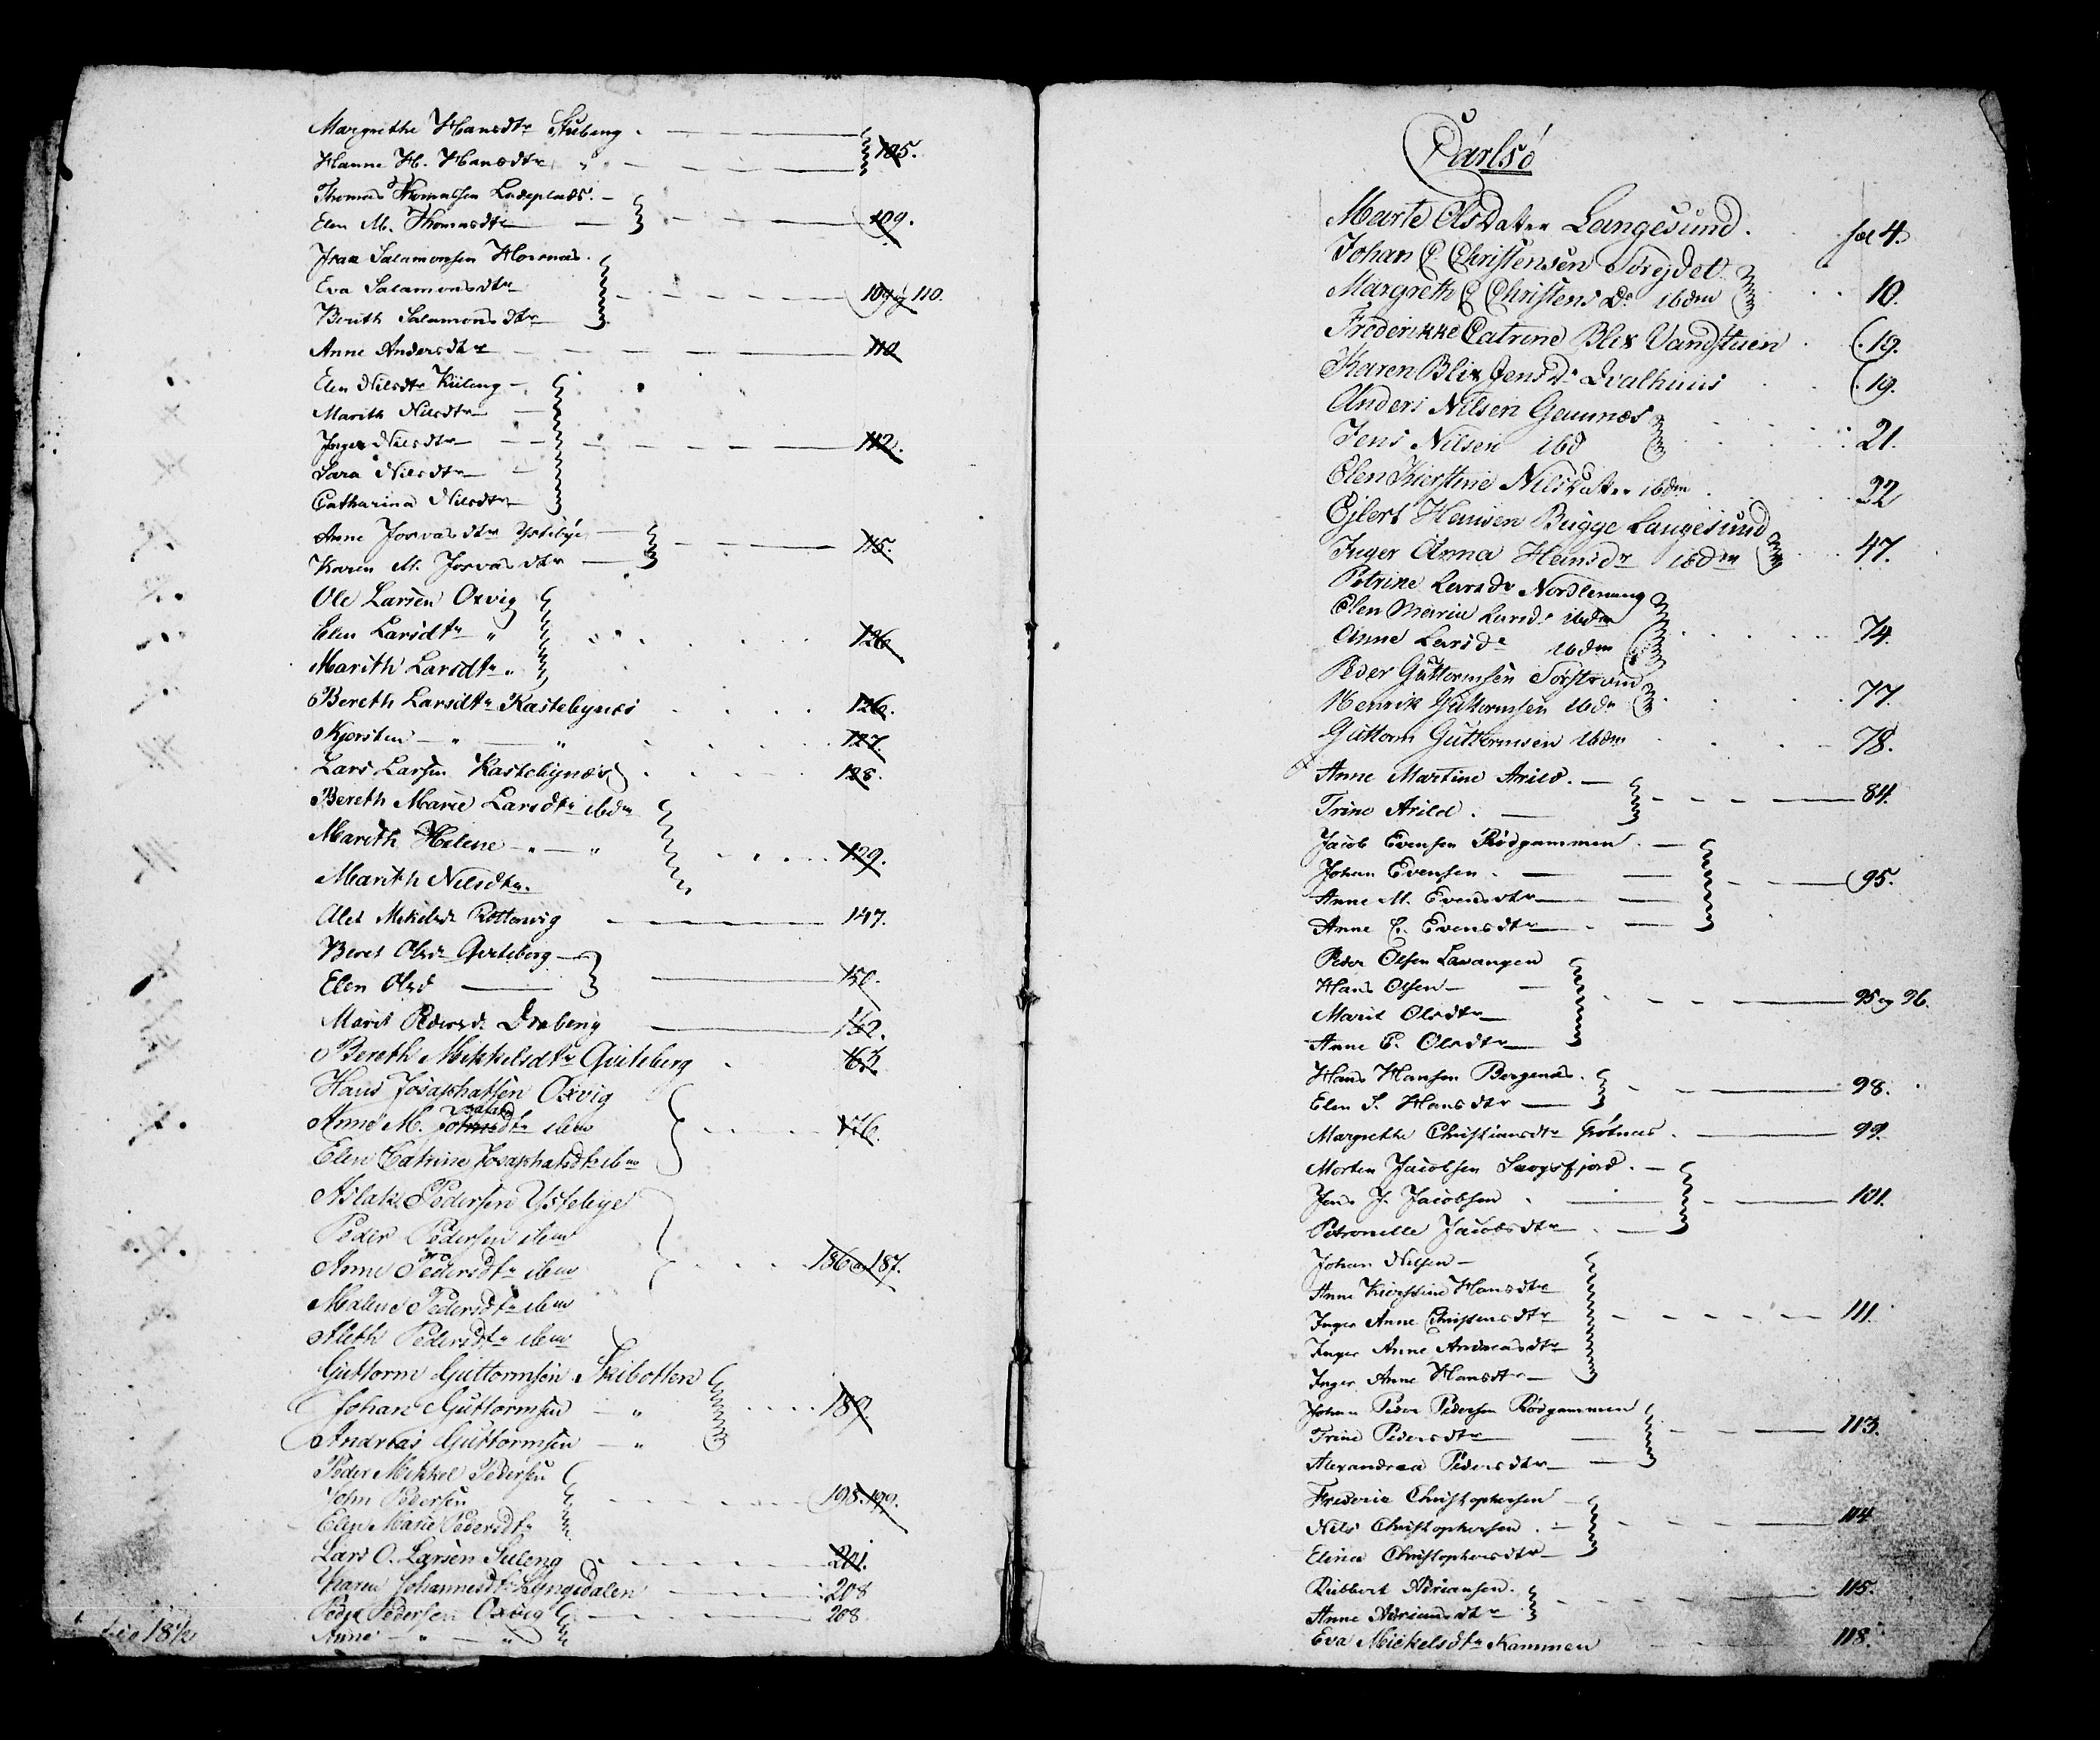 Margrethe Hansdtr Stubeng 105.
Hanne H. Hansdtr "
Thomas Thomassen Ladeplads.
Elen M. Thomasdtr 109.
Isac Salamonsen Hornnæs.
Eva Salamonsdtr 109 og 110.
Berith Salamonsdtr
Anne Andersdtr 110
Elen Nilsdtr Kileng
Marith Nilsdtr
Inger Nilsdtr 112.
Sara Nilsdtr
Catharina Nilsdtr
Anne Josvasdtr Ystebye 115.
Karen M. Josvasdtr
Ole Larsen Oxvig
Elen Larsdtr " 126
Marith Larsdtr "
Bereth Larsdtr Kastebynæs 126.
Kjersten " " 127.
Lars Larsen Kastebynæs 128.
Bereth Marie Larsdtr ibdm
Marith Helene " " 129.
Marith Nilsdtr.
Alet Mikelsdr Rottenvig 147.
Beret Olsdr Qviteberg
Elen Olsd 150.
Marit Pedersdr Draberg 162.
Bereth Mikkelsdtr Qviteberg 163.
Hans Josaphatsen Oxvig
Anne M. Josaphatsdtr ibm 176.
Elen Catrine Josaphatsdtr ibm
Aslak Pedersen Ystebye
Peder Pedersen ibm
Anne Pedersdtr ibm 186 og 187.
Malene Pedersdtr ibm
Aleth Pedersdtr ibm
Guttorm Guttormsen Skibotten
Johan Guttormsen " 189.
Andreas Guttormsen "
Peder Mikkel Pedersen
John Pedersen 198. 199.
Elen Marie Pedersdtr
Lars O. Larsen Kileng 201.
Karen Johannesdtr Lyngsdalen 208
Peder Pedersen Oxvig 208
Anne " "
Carlsø
Marte Olsdatter Langesund. fol 4.
Johan C. Christensen Torejdet
Margreth C Christensdr ibdm 10.
Frederikke Catrine Blix Vandstuen 19.
Karen Blix Jensdr Qvalhuus 19.
Anders Nilsen Gamnæs
Jens Nilsen ibd 21.
Elen Kierstine Nilsdatter ibdm 22
Ejlert Hansen Bugge Langesund
Inger Anna Hansdr ibdm 47.
Petrine Larsdr Nordlenang
Elen Maria Larsdr ibdm 74.
Anne Larsdr ibdm
Peder Guttormsen
Henrik Guttormsen ibdm 77.
Guttorm Guttormsen ibdm 78.
Anne Martine Arild.
Trine Arild. 84.
Jacob Evensen Rødgammen.
Johan Evensen. 95.
Anne M. Evensdtr
Anne E. Evensdtr
Peder Olsen Lavangen
Hans Olsen 95 og 96.
Marit Olsdtr
Anne E. Olsdtr
Hans Hansen Bergenæs. 98.
Elen S. Hansdtr
Margrethe Christiansdtr Grøtnæs. 99.
Morten Jacobsen Skogsfjord.
Jens J. Jacobsen 101.
Petronelle Jacobsdtr
Johan Nilsen
Anne Kierstine Hansdtr
Inger Anne Christensdtr 111.
Inger Anne Andreasdtr
Inger Anne Hansdtr
Johan Peder Pedersen Rødgammen
Trine Pedersdtr 113.
Alexandrea Pedersdtr
Frederic Christophersen
Nils Christophersen. 114
Elina Christophersdtr
Rubbert Adriansen. 115.
Anne Adriansdtr
Eva Mickelsdtr Kammen 118.